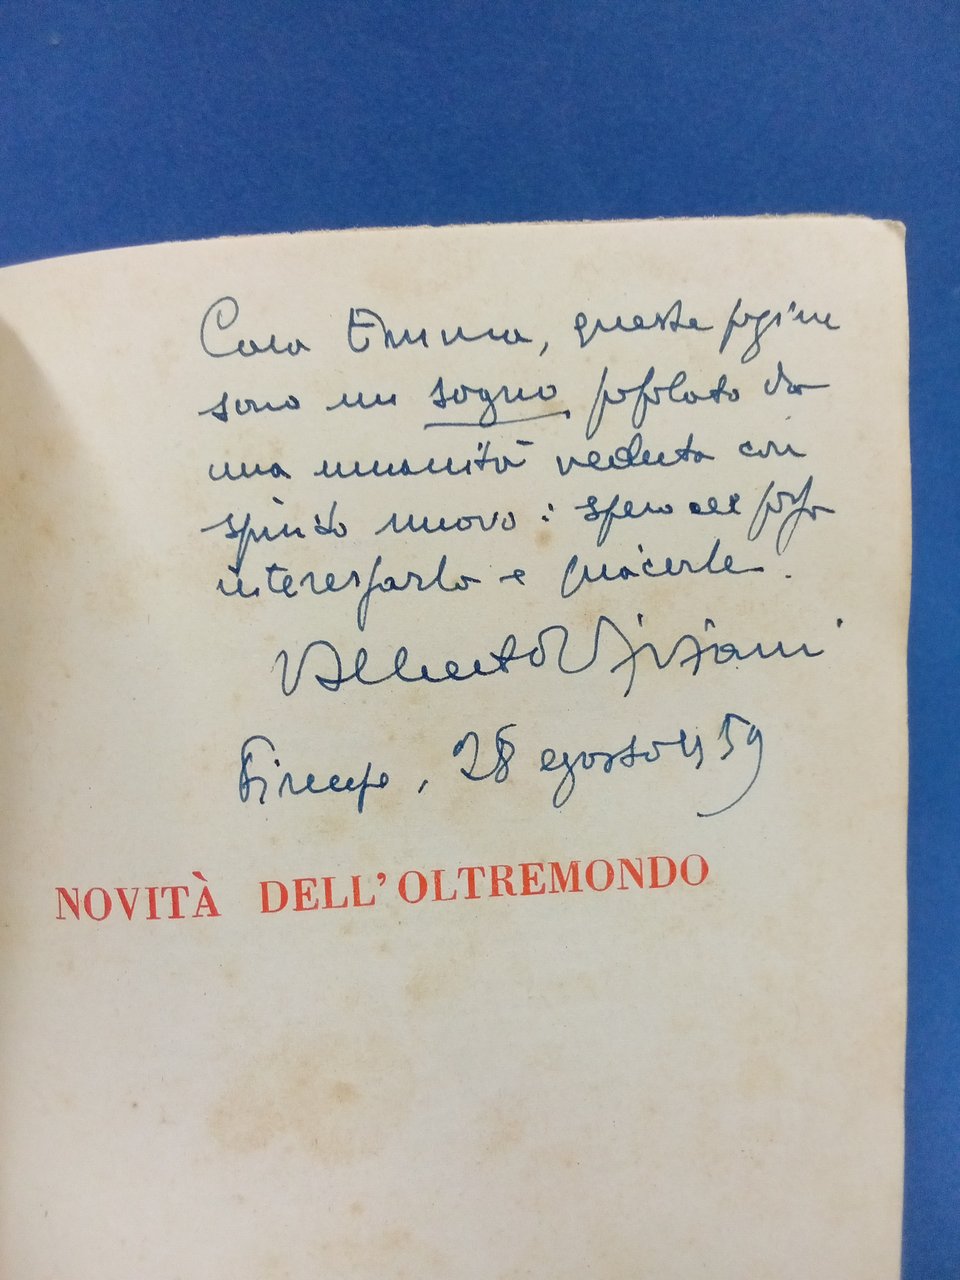 Cara Emma, queste pagine
sono un sogno popolato da
una umanità veduta con
spirito nuovo: spero che possa
interessarla e piacerle.
Alberto Viviani
Firenze, 28 agosto 59
NOVITÀ DELL'OLTREMONDO